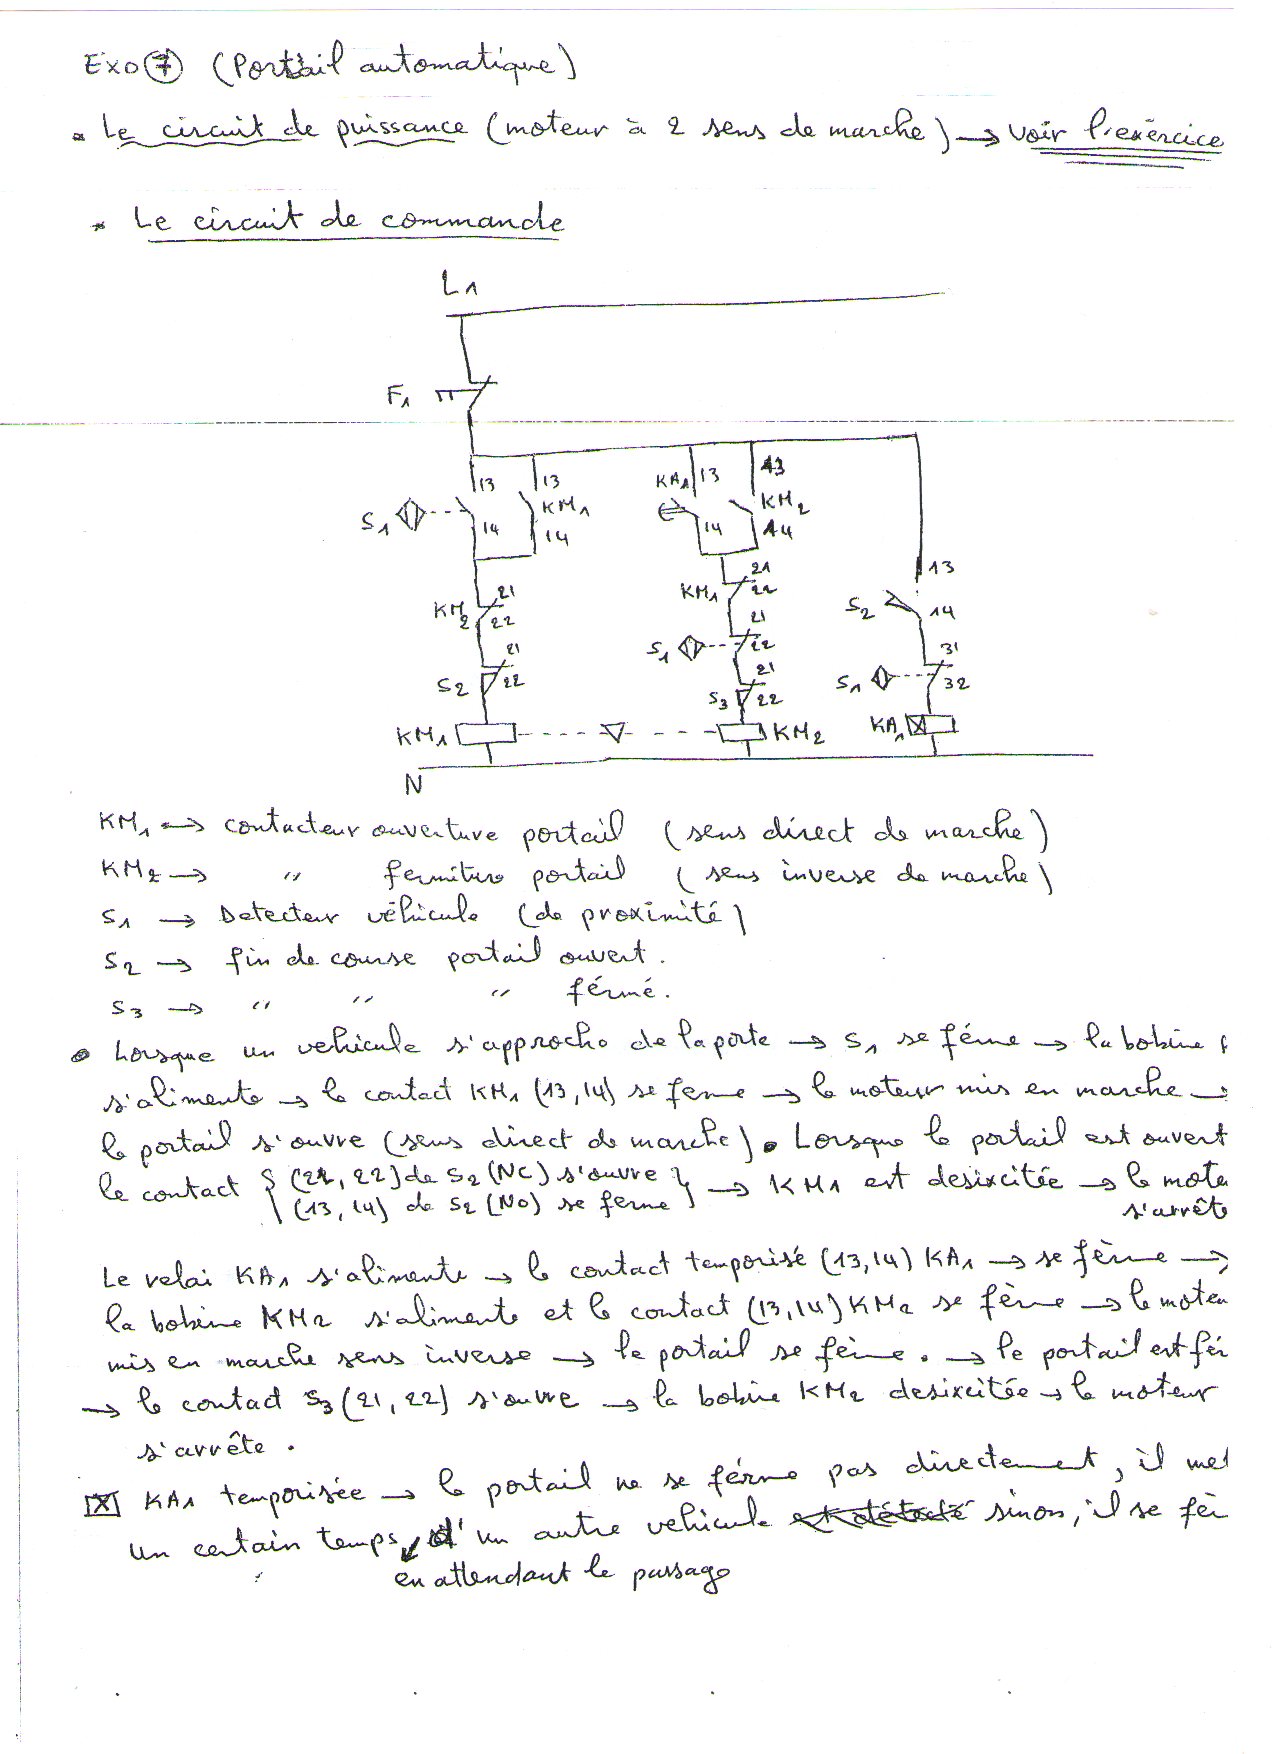 Exo ⑦ (Portail automatique)
* Le circuit de puissance (moteur à 2 sens de marche) → voir l'exercice
* Le circuit de commande
L1
F1
13 13 KA1 13 13
S1 14 KM1 14 14 KM2 14
KM2 21 22 KM1 21 22 13
S2 14
S2 21 22 S1 21 22 S1 31 32
S3 21 22
KM1 KM2 KA1
N
KM1 → contacteur ouverture portail (sens direct de marche)
KM2 → " fermiture portail (sens inverse de marche)
S1 → Detecteur véhicule (de proximité)
S2 → fin de course portail ouvert.
S3 → " " " férmé.
• Lorsque un vehicule s'approche de la porte → S1 se férme → la bobine
s'alimente → le contact KM1 (13,14) se ferme → le moteur mis en marche →
le portail s'ouvre (sens direct de marche). • Lorsque le portail est ouvert
le contact { (21, 22) de S2 (NC) s'ouvre } → KM1 est desixcitée → le mote
(13, 14) de S2 (NO) se ferme s'arrête
Le relai KA1 s'alimente → le contact temporisé (13,14) KA1 → se fèrme →
la bobine KM2 s'alimente et le contact (13,14) KM2 se fèrme → le moteu
mis en marche sens inverse → le portail se fèrme. → le portail est fér
→ le contact S3 (21, 22) s'ouvre → la bobine KM2 desixcitée → le moteur
s'arrête.
KA1 temporisée → le portail ne se férme pas directement, il met
un certain temps d'un autre vehicule sinon, il se fèr
en attendant le passage